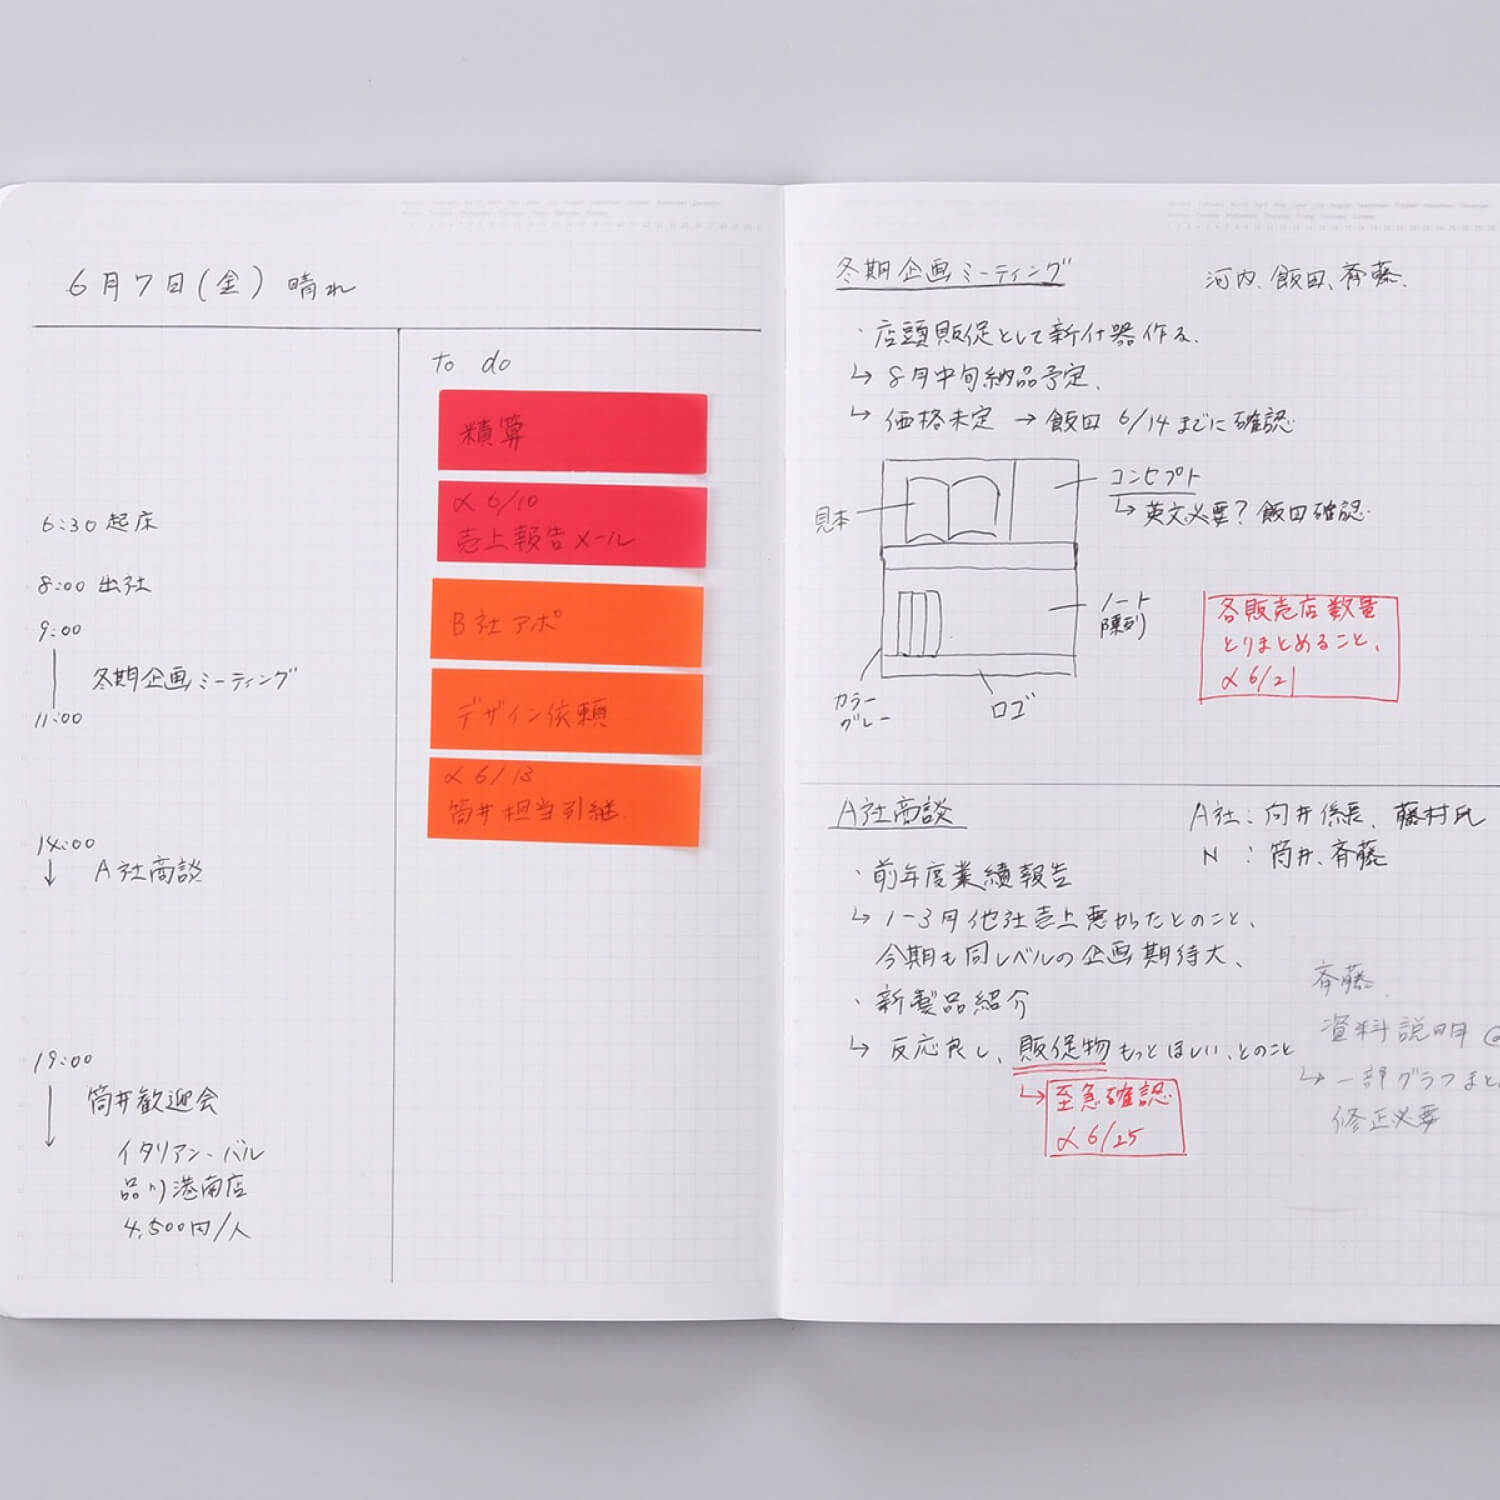 6月7日(金) 晴れ
6:30 起床
8:00 出社
9:00
冬期企画ミーティング
11:00
14:00
↓ A社商談
19:00
↓ 筒井歓迎会
イタリアン・バル
品川港南店
4,500円/人
to do
積算
〆6/10
売上報告メール
B社アポ
デザイン依頼
〆6/13
筒井担当引継
冬期企画ミーティング
河内、飯田、斉藤
・店頭販促として新什器作る。
↳8月中旬納品予定、
↳価格未定 → 飯田 6/14までに確認
見本
コンセプト
↳英文必要? 飯田確認
ノート
陳列
カラー
グレー
ロゴ
各販売店数量
とりまとめること、
〆6/21
A社商談
A社:向井係長、藤村氏
N :筒井、斉藤
・前年度業績報告
↳1-3月他社売上悪かったとのこと、
今期も同レベルの企画期待大、
・新製品紹介
↳反応良し、販促物もっとほしい、とのこと
↳至急確認
〆6/25
斉藤
資料説明
↳一部グラフまと
修正必要